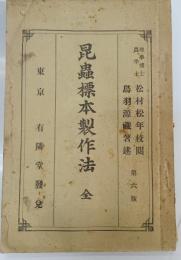 理學博士
農學士
松村松年校閲
鳥羽源藏著述
第六版
昆蟲標本製作法 全
東京 有隣堂發兌